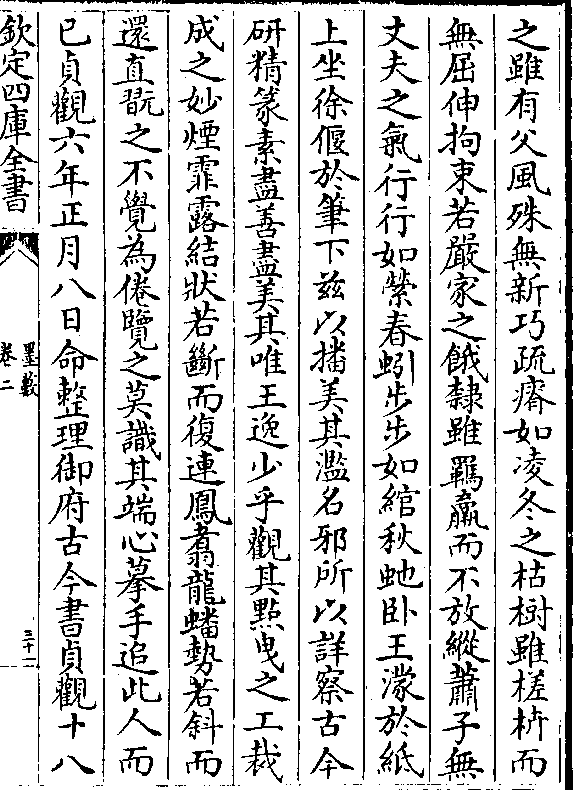 之雖有父風殊無新巧疏瘠如凌冬之枯樹雖槎枿而
無屈伸拘束若嚴家之餓隸雖羈羸而不放縱蕭子無
丈夫之氣行行如縈春蚓步步如綰秋虵卧王濛於紙
上坐徐偃於筆下兹以播美其濫名邪所以詳察古今
研精篆素盡善盡美其唯王逸少乎觀其點曳之工裁
成之妙煙霏露結狀若斷而復連鳳翥龍蟠勢若斜而
還直翫之不覺為倦覽之莫識其端心摹手追此人而
已貞觀六年正月八日命整理御府古今書貞觀十八
欽定四庫全書
墨藪
卷二
三十一